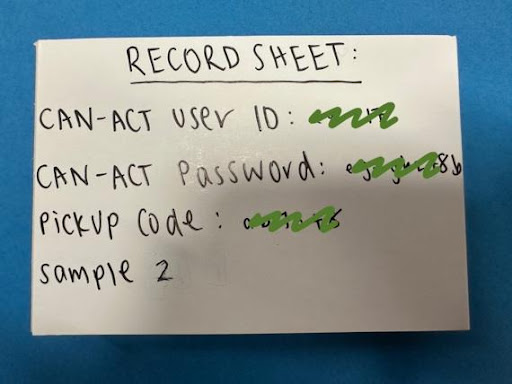 RECORD SHEET:
CAN-ACT User ID:
CAN-ACT Password:
Pickup Code:
Sample 2